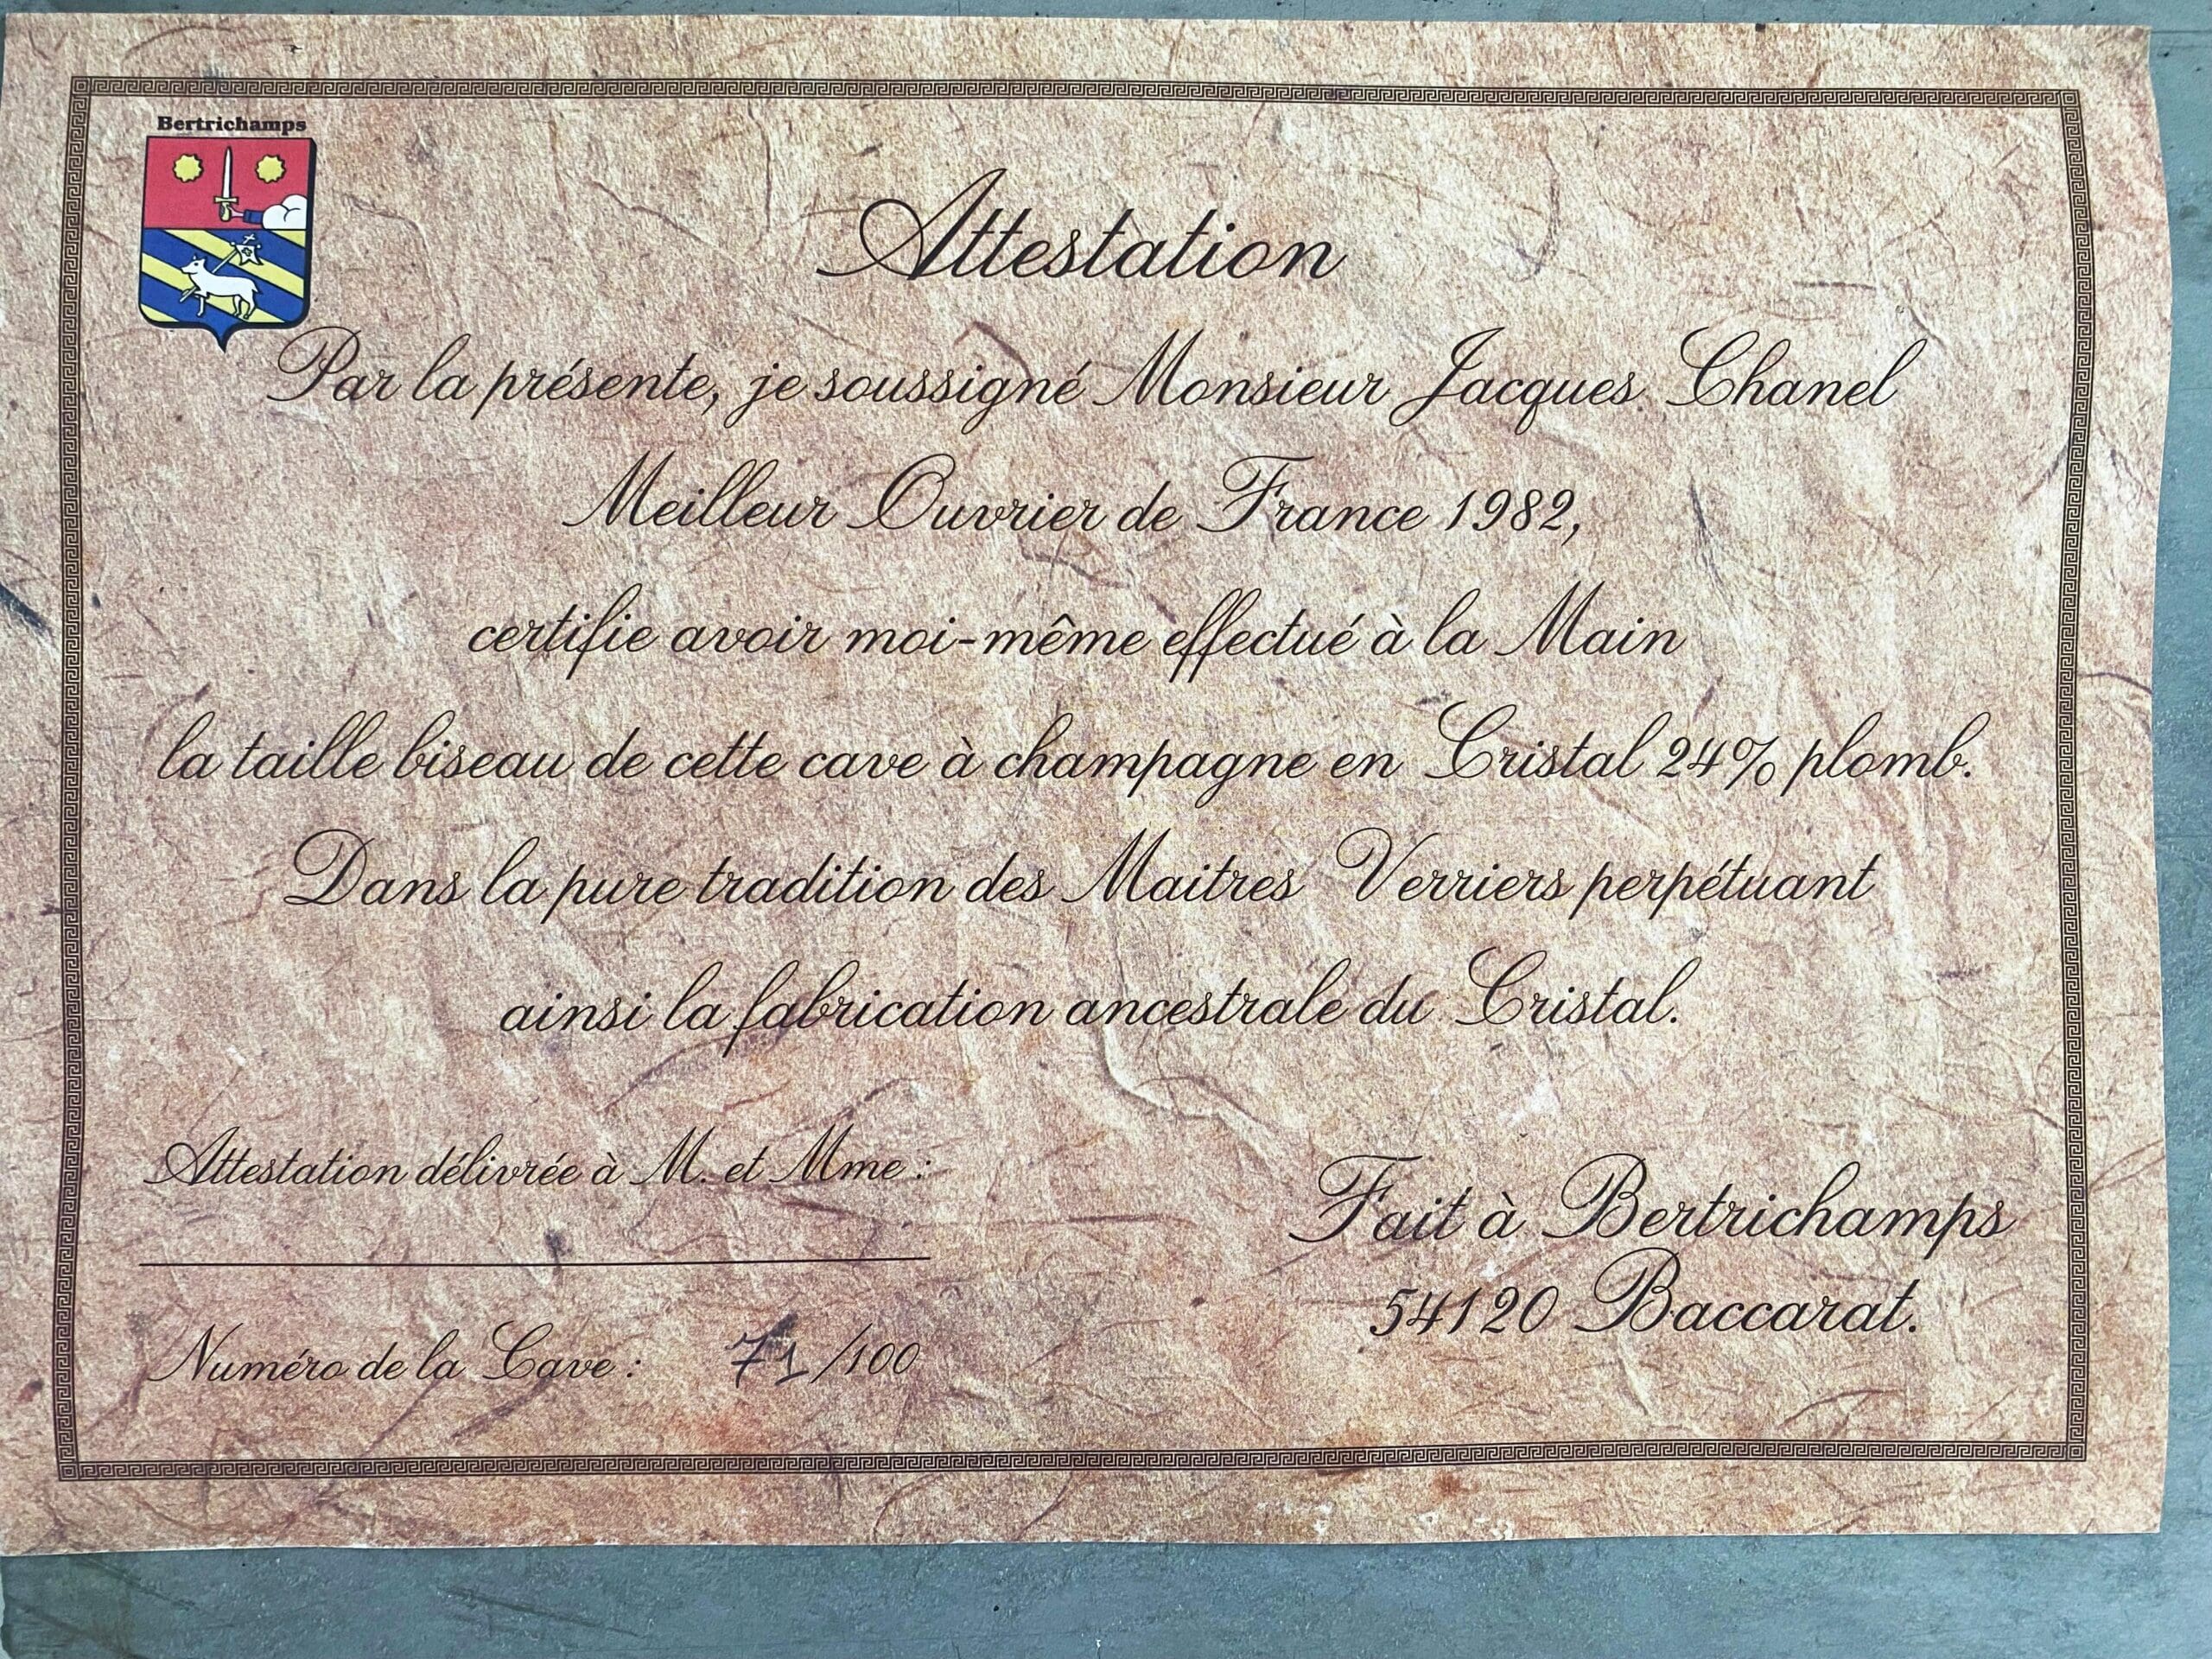 Bertrichamps
Attestation
Par la présente, je soussigné Monsieur Jacques Chanel
Meilleur Ouvrier de France 1982,
certifie avoir moi-même effectué à la Main
la taille biseau de cette cave à champagne en Cristal 24% plomb.
Dans la pure tradition des Maitres Verriers perpétuant
ainsi la fabrication ancestrale du Cristal.
Attestation délivrée à M. et Mme :
Numéro de la Cave : 71 /100
Fait à Bertrichamps
54120 Baccarat.